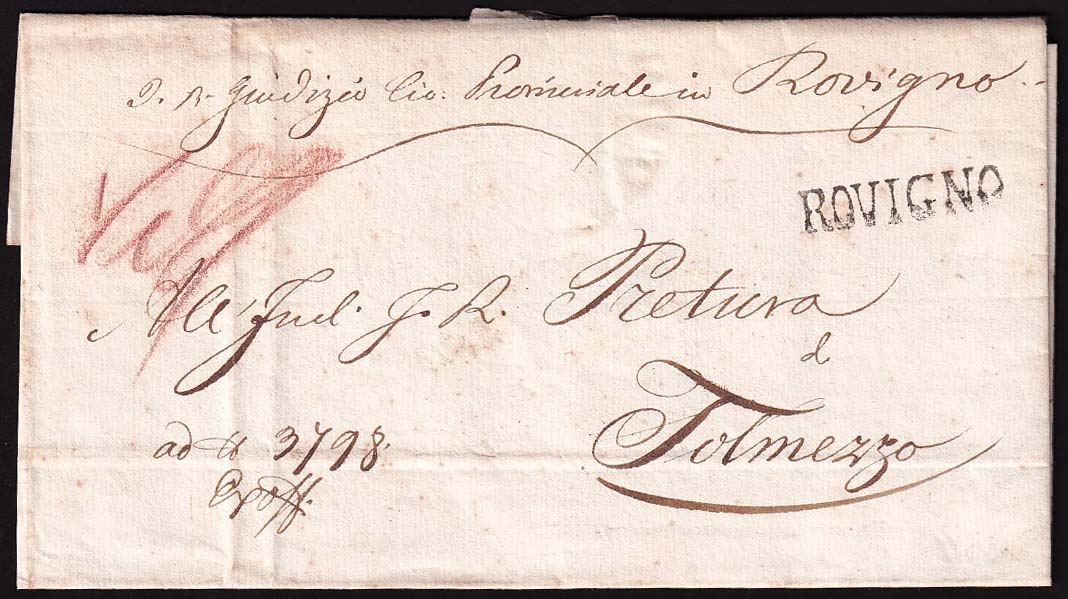 I. R. Giudizio Civ. Provinciale in Rovigno
ROVIGNO
All Incl. I. R. Pretura
d
Tolmezzo
ad N 3798
Exoff.